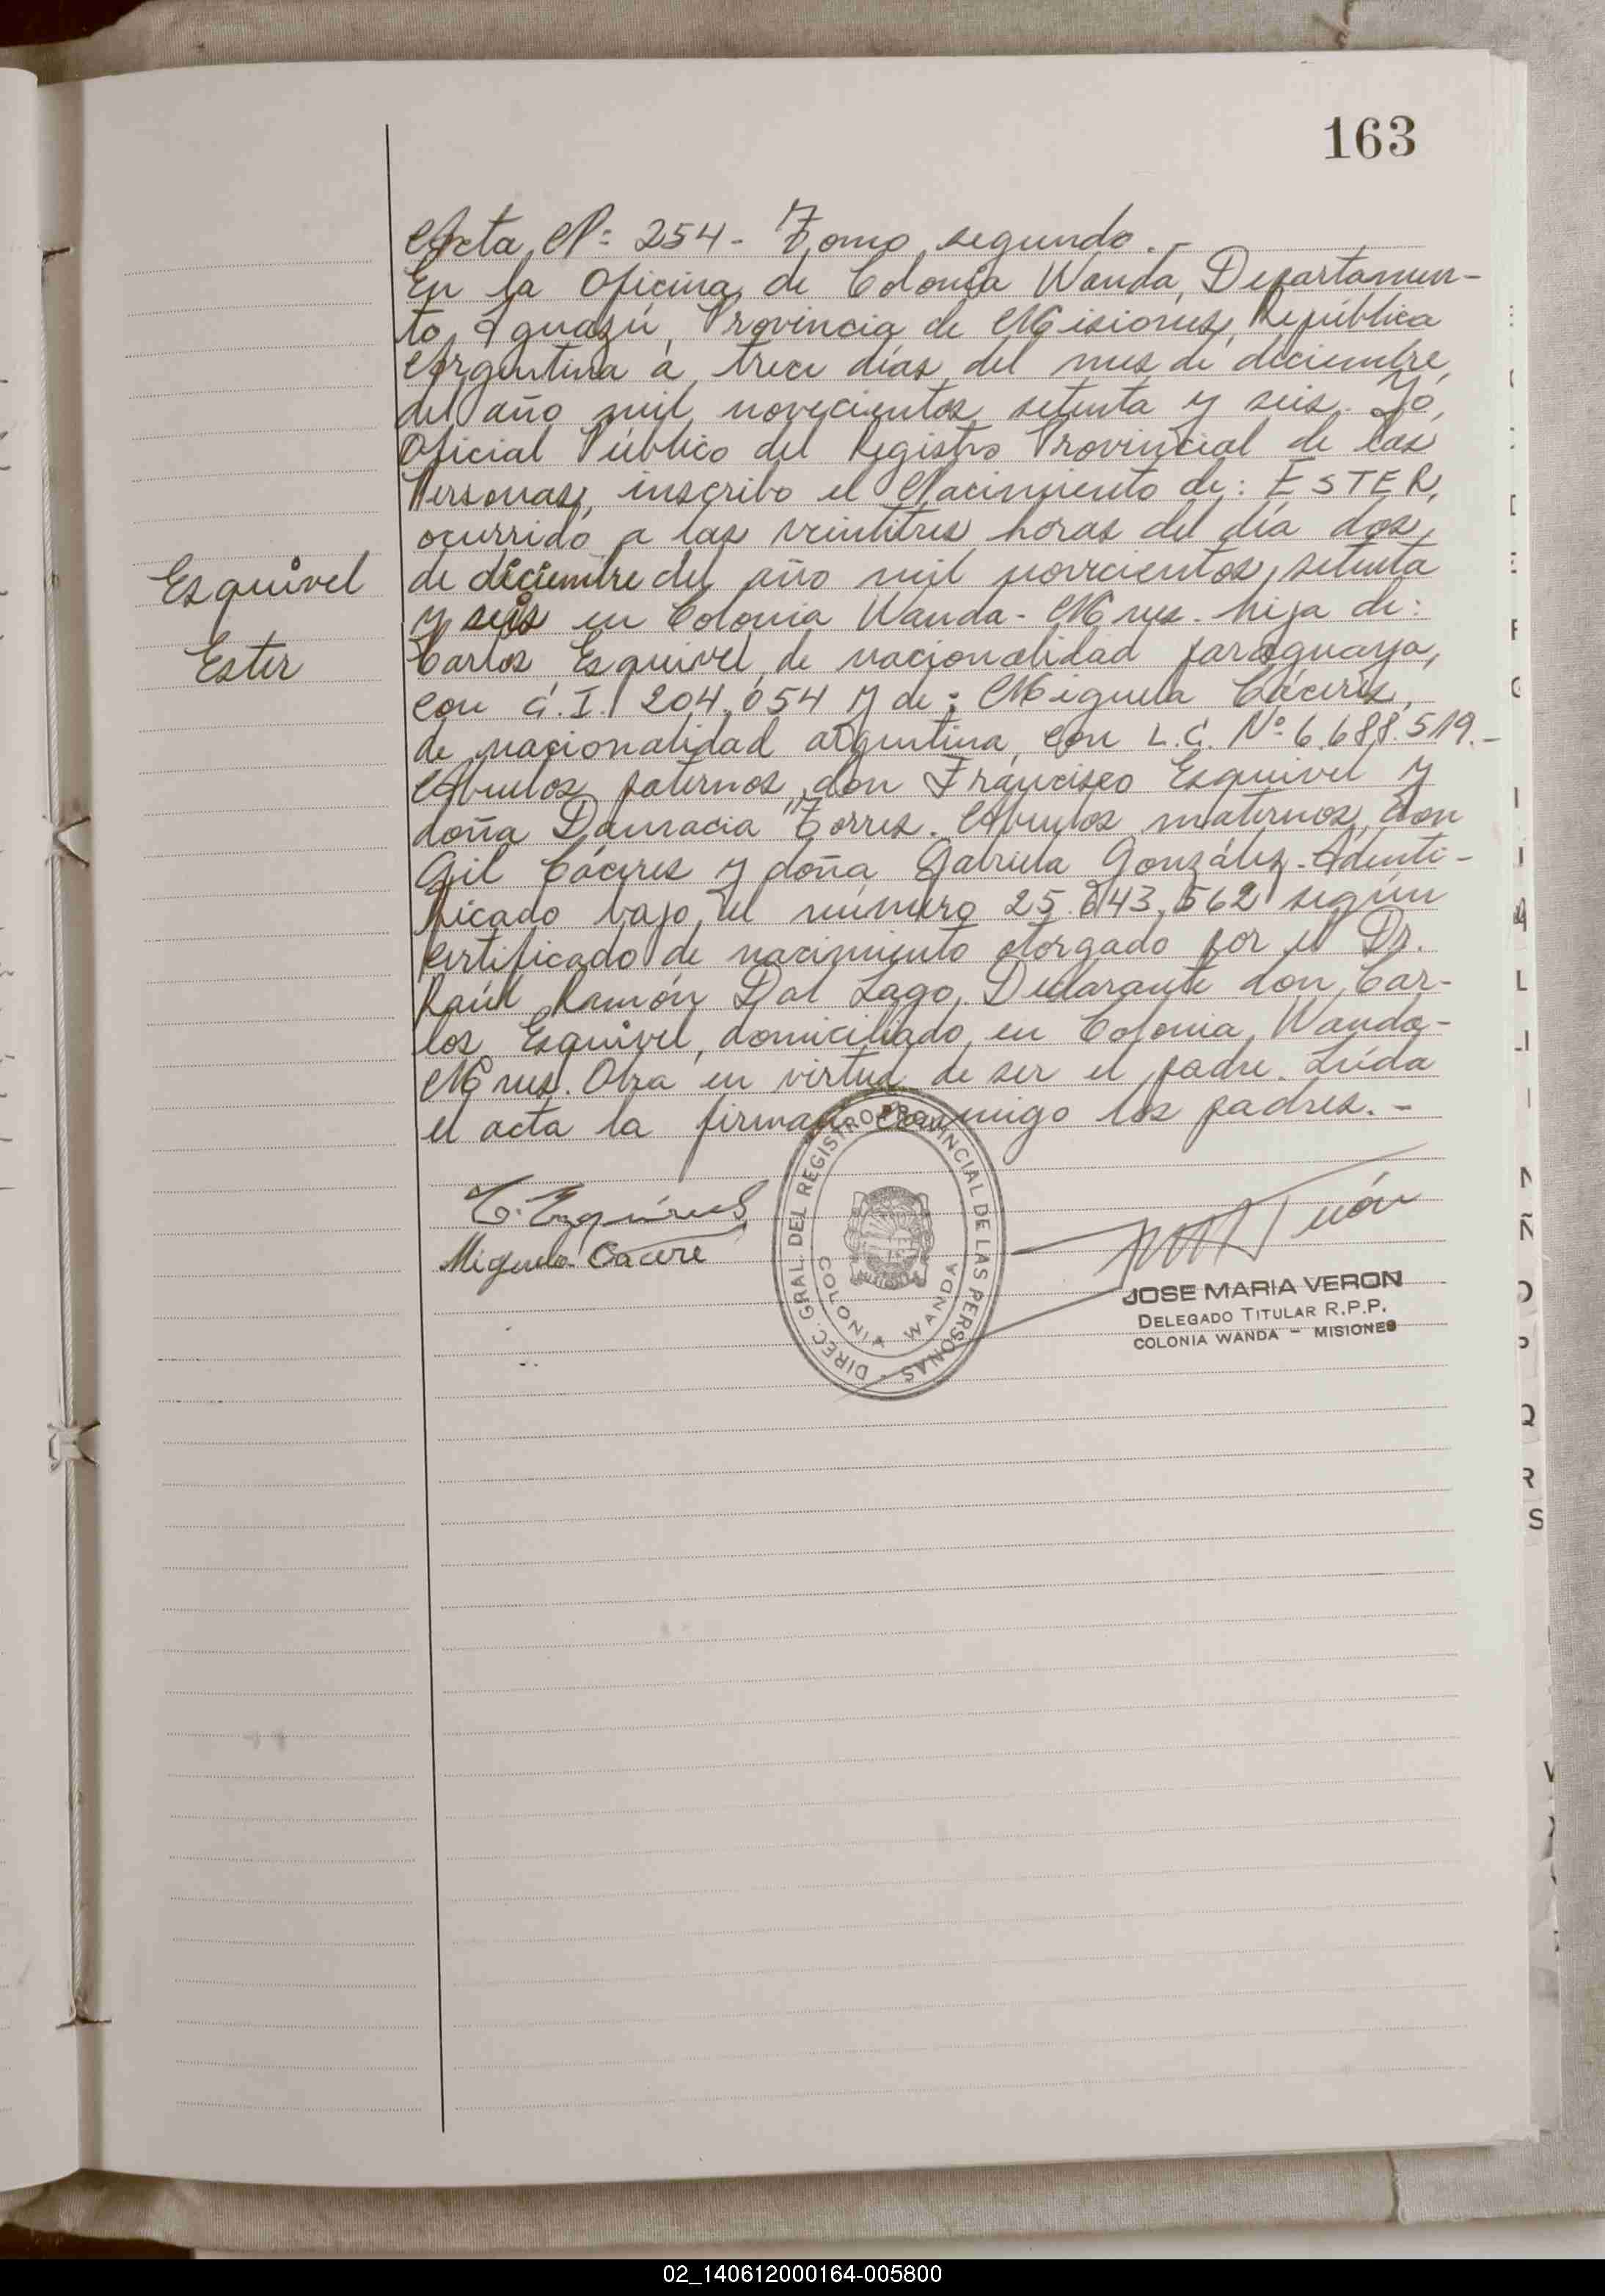 163
Acta Nº: 254 - Tomo segundo. -
En la Oficina de Colonia Wanda, Departamen-
to Iguazú, Provincia de Misiones, República
Argentina a trece días del mes de diciembre,
del año mil novecientos setenta y seis. Yo,
Oficial Público del Registro Provincial de las
Personas, inscribo el Nacimiento de: ESTER,
ocurrido a las veintitres horas del día dos,
Esquivel
de diciembre del año mil novecientos setenta
y seis en Colonia Wanda - Mnes. hija de:
Ester
Carlos Esquivel de nacionalidad paraguaya,
con C.I. 204.054 y de: Miguela Cáceres,
de nacionalidad argentina, con L.C. Nº: 6.688.519.-
Abuelos paternos don Francisco Esquivel y
doña Damacia Torres. Abuelos maternos don
Gil Cáceres y doña Gabriela González. Identi-
ficado bajo el número 25.643.562 según
certificado de nacimiento otorgado por el Dr.
Raúl Ramón Dal Lago. Declarante don Car-
los Esquivel, domiciliado en Colonia Wanda -
Mnes. Obra en virtud de ser el padre. Leída
el acta la firman conmigo los padres. -
C. Ezquivel
Miguela Cacere
DIREC. GRAL. DEL REGISTRO PROVINCIAL DE LAS PERSONAS -
COLONIA WANDA
JOSE MARIA VERON
DELEGADO TITULAR R.P.P.
COLONIA WANDA - MISIONES
L
N
Ñ
O
P
Q
R
S
02_140612000164-005800